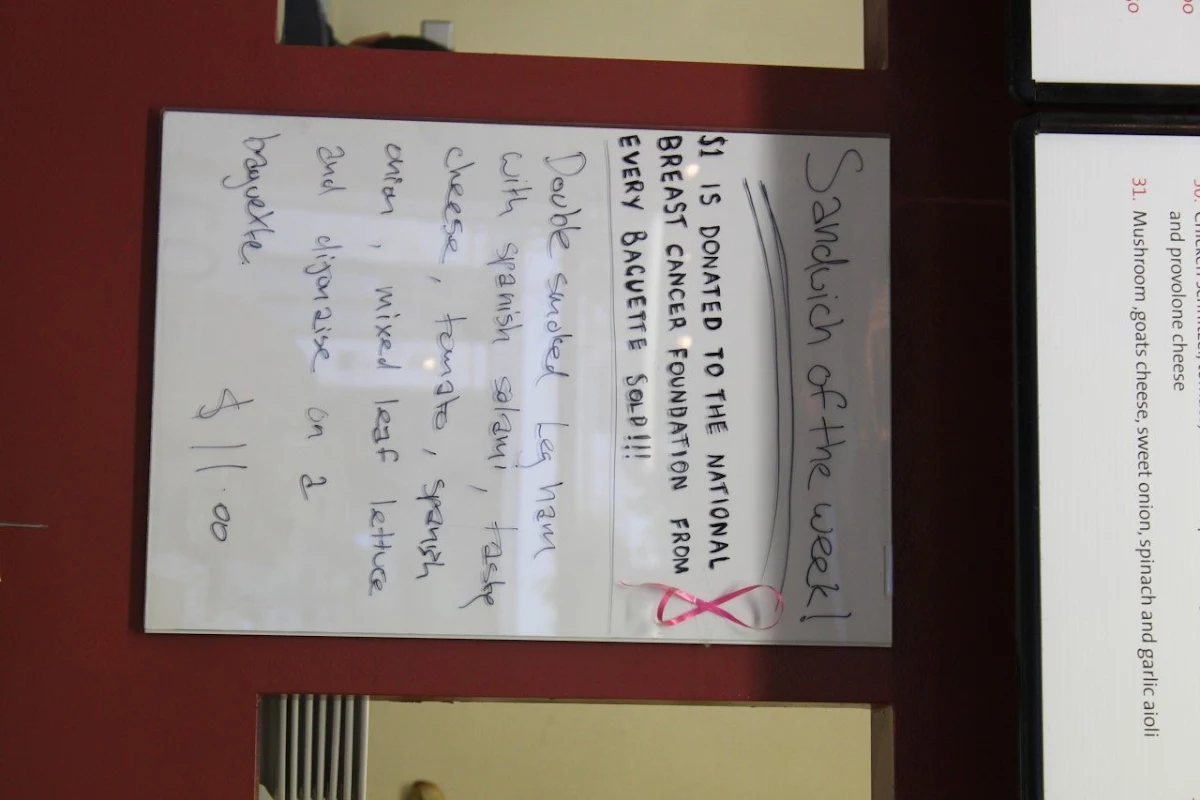 and provolone cheese
31. Mushroom ,goats cheese, sweet onion, spinach and garlic aioli
Sandwich of the week!
$1 IS DONATED TO THE NATIONAL
BREAST CANCER FOUNDATION FROM
EVERY BAGUETTE SOLD!!!
Double smoked Leg ham
with spanish salami, tasty
cheese, tomato, spanish
onion, mixed leaf lettuce
and dijonaise on a
baguette.
$11.00